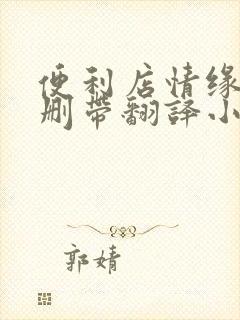 便利店情缘
删带翻译小
郭婧